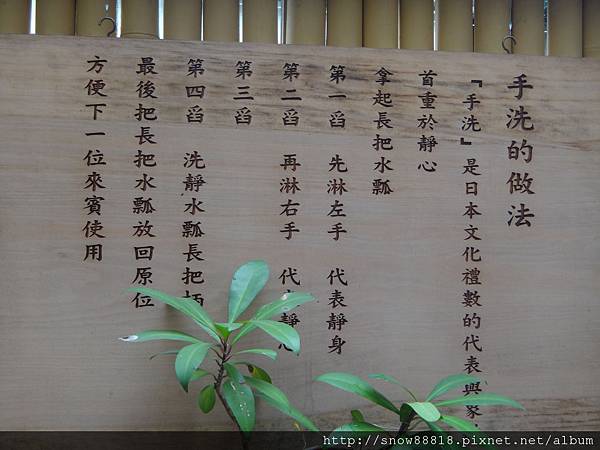 手洗的做法
『手洗』是日本文化禮數的代表與象
首重於靜心
拿起長把水瓢
第一舀 先淋左手 代表靜身
第二舀 再淋右手 代表靜心
第三舀
第四舀 洗靜水瓢長把柄
最後把長把水瓢放回原位
方便下一位來賓使用
http://snow88818.pixnet.net/album